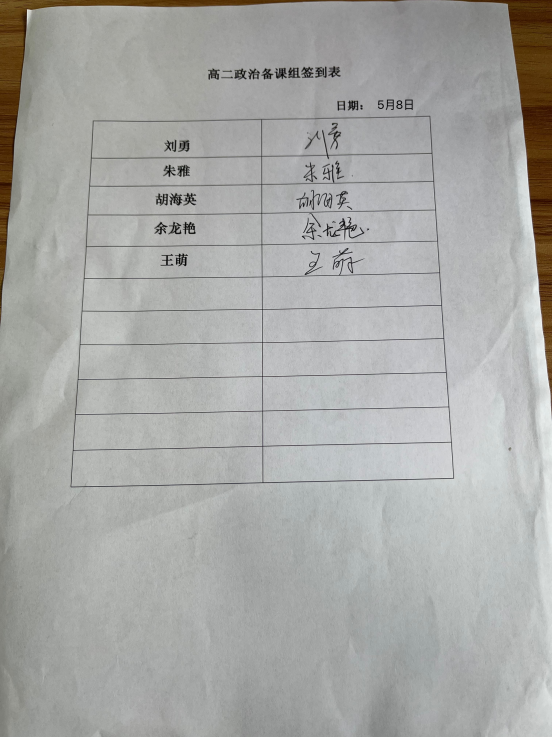 高二政治备课组签到表
日期： 5月8日
刘勇 刘勇
朱雅 朱雅
胡海英 胡海英
余龙艳 余龙艳
王萌 王萌